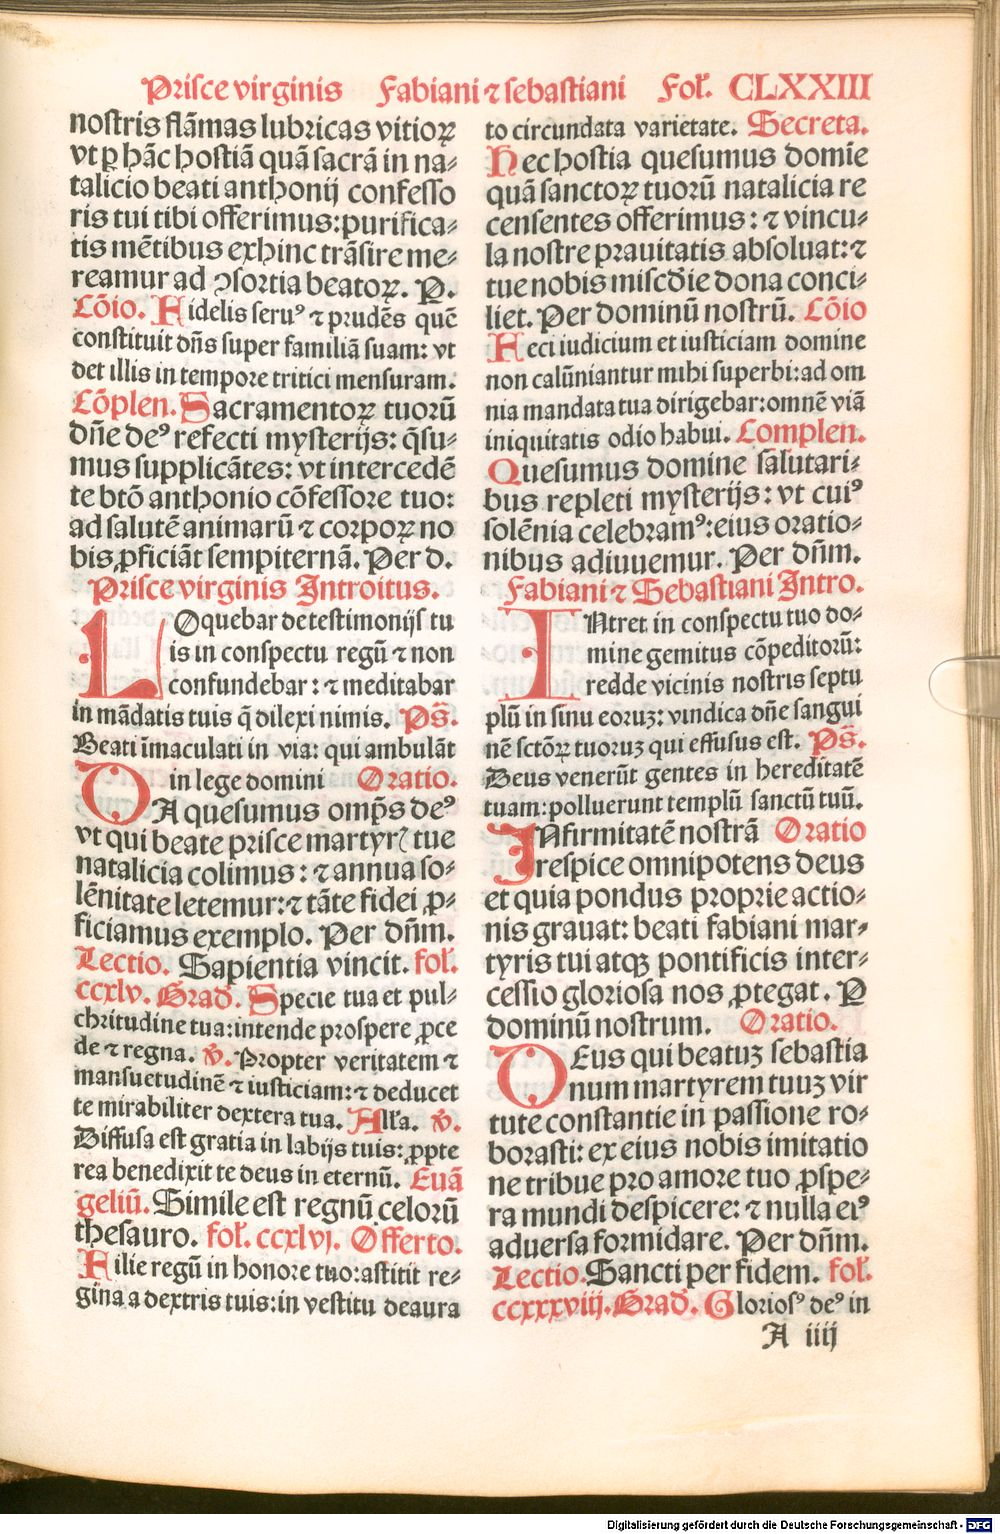 Prisce virginis Fabiani ⁊ sebastiani Fol. CLXXIII
nostris flāmas lubricas vitioꝝ
vt ꝑ hāc hostiā quā sacrā in na⸗
talicio beati anthonij confesso
ris tui tibi offerimus: purifica⸗
tis mētibus exhinc trāsire me⸗
reamur ad ꝯsortia beatoꝝ. P.
Cōio. Fidelis seruꝰ ⁊ prudēs quē
constituit dn̄s super familiā suam: vt
det illis in tempore tritici mensuram.
Cōplen. Sacramentoꝝ tuorū
dn̄e deꝰ refecti mysterijs: q̄su⸗
mus supplicātes: vt intercedē
te btō anthonio cōfessore tuo:
ad salutē animarū ⁊ corpoꝝ no
bis ꝓficiāt sempiternā. Per d.
Prisce virginis Introitus.
LOquebar de testimonijs tu
is in conspectu regū ⁊ non
confundebar: ⁊ meditabar
in mādatis tuis q̄ dilexi nimis. Ps̄.
Beati īmaculati in via: qui ambulāt
in lege domini Oratio.
DA quesumus omp̄s deꝰ
vt qui beate prisce martyrꝭ tue
natalicia colimus: ⁊ annua so⸗
lēnitate letemur: ⁊ tāte fidei ꝓ⸗
ficiamus exemplo. Per dn̄m.
Lectio. Sapientia vincit. fol.
ccxlv. Grad. Specie tua et pul⸗
chritudine tua: intende prospere ꝓce
de ⁊ regna. v̄. Propter veritatem ⁊
mansuetudinē ⁊ iusticiam: ⁊ deducet
te mirabiliter dextera tua. Alľa. v̄.
Diffusa est gratia in labijs tuis: ꝓpte
rea benedixit te deus in eternū. Euā
geliū. Simile est regnū celorū
thesauro. fol. ccxlvj. Offerto.
Filie regū in honore tuo: astitit re⸗
gina a dextris tuis: in vestitu deaura
to circundata varietate. Secreta.
Hec hostia quesumus domīe
quā sanctoꝝ tuorū natalicia re
censentes offerimus: ⁊ vincu⸗
la nostre prauitatis absoluat: ⁊
tue nobis miscd̄ie dona conci⸗
liet. Per dominū nostrū. Cōio
Feci iudicium et iusticiam domine
non calūniantur mihi superbi: ad om
nia mandata tua dirigebar: omnē viā
iniquitatis odio habui. Complen.
Quesumus domine salutari⸗
bus repleti mysterijs: vt cuiꝰ
solēnia celebramꝰ: eius oratio⸗
nibus adiuuemur. Per dn̄m.
Fabiani ⁊ Sebastiani Intro.
INtret in conspectu tuo do⸗
mine gemitus cōpeditorū:
redde vicinis nostris septu
plū in sinu eoruꝫ: vindica dn̄e sangui
nē sctōꝝ tuoruꝫ qui effusus est. Ps̄.
Deus venerūt gentes in hereditatē
tuam: polluerunt templū sanctū tuū.
INfirmitatē nostrā Oratio
respice omnipotens deus
et quia pondus proprie actio⸗
nis grauat: beati fabiani mar⸗
tyris tui atqꝫ pontificis inter⸗
cessio gloriosa nos ꝓtegat. P
dominū nostrum. Oratio.
DEus qui beatuꝫ sebastia
num martyrem tuuꝫ vir
tute constantie in passione ro⸗
borasti: ex eius nobis imitatio
ne tribue pro amore tuo ꝓspe⸗
ra mundi despicere: ⁊ nulla eiꝰ
aduersa formidare. Per dn̄m.
Lectio. Sancti per fidem. fol.
ccxxxviij. Grad. Gloriosꝰ deꝰ in
A iiij
Digitalisierung gefördert durch die Deutsche Forschungsgemeinschaft - DFG